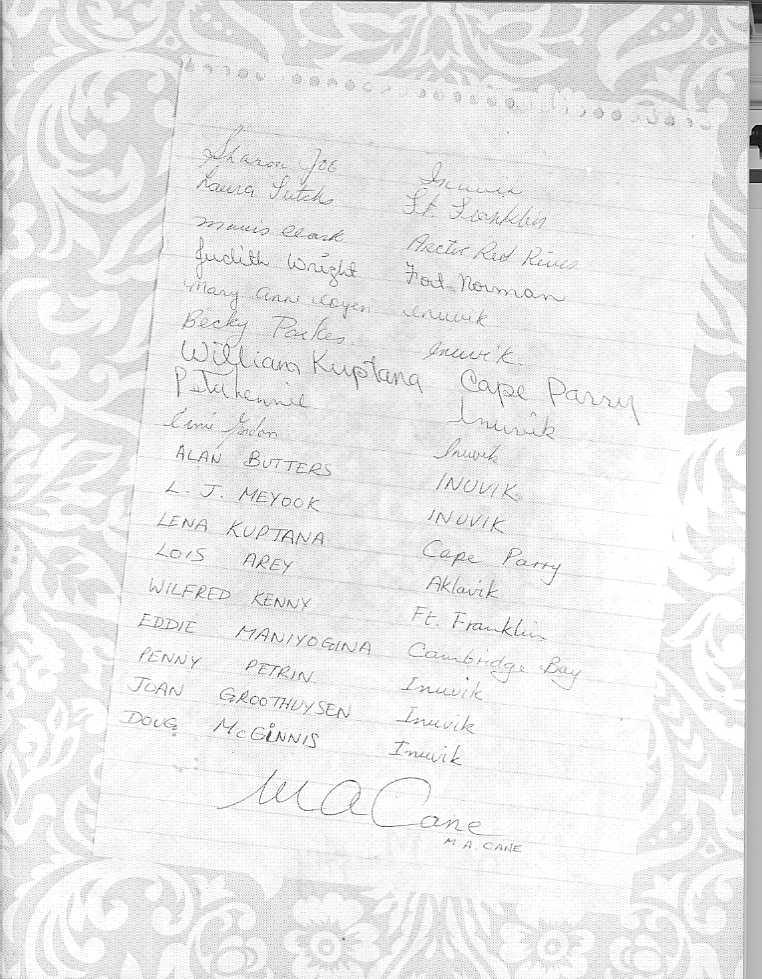 Sharon Joe Inuvik
Laura Tutcho Ft. Franklin
Mavis Clark Arctic Red River
Judith Wright Fort Norman
Mary Anne Inuvik
Becky Parkes Inuvik.
William Kuptana Cape Parry
Inuvik
Inuvik
ALAN BUTTERS INUVIK
L. J. MEYOOK INUVIK
LENA KUPTANA Cape Parry
LOIS AREY Aklavik
WILFRED KENNY Ft. Franklin
EDDIE MANIYOGINA Cambridge Bay
PENNY PETRIN Inuvik
JOAN GROOTHUYSEN Inuvik
DOUG McGINNIS Inuvik
M A Cane
M A. CANE